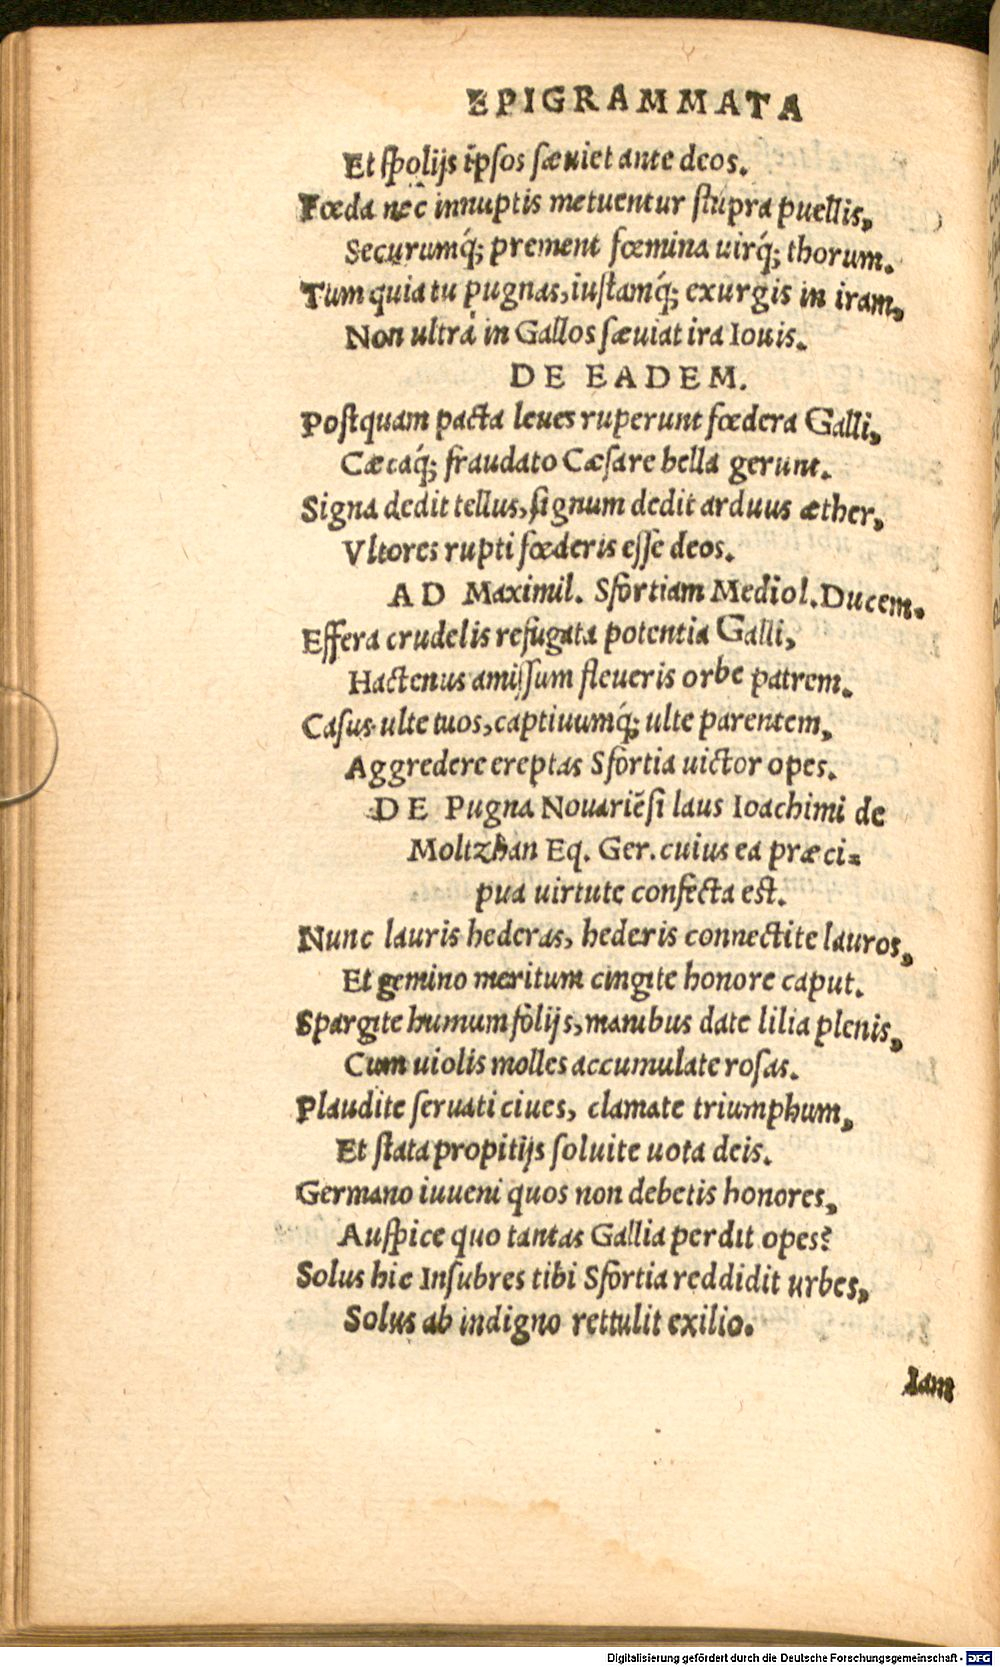 EPIGRAMMATA
Et spolijs ipsos sæuiet ante deos.
Fœda nec innuptis metuentur stupra puellis,
Securumq́; prement fœmina uirq́; thorum.
Tum quia tu pugnas, iustamq́; exurgis in iram,
Non ultrà in Gallos sæuiat ira Iouis.
DE EADEM.
Postquam pacta leues ruperunt fœdera Galli,
Cæcaq́; fraudato Cæsare bella gerunt.
Signa dedit tellus, signum dedit arduus æther,
Vltores rupti fœderis esse deos.
AD Maximil. Sfortiam Mediol. Ducem.
Effera crudelis refugata potentia Galli,
Hactenus amissum fleueris orbe patrem.
Casus ulte tuos, captiuumq́; ulte parentem,
Aggredere ereptas Sfortia uictor opes.
DE Pugna Nouariēsi laus Ioachimi de
Moltzhan Eq. Ger. cuius ea præci=
pua uirtute confecta est.
Nunc lauris hederas, hederis connectite lauros,
Et gemino meritum cingite honore caput.
Spargite humum folijs, manibus date lilia plenis,
Cum uiolis molles accumulate rosas.
Plaudite seruati ciues, clamate triumphum,
Et stata propitijs soluite uota deis.
Germano iuueni quos non debetis honores,
Auspice quo tantas Gallia perdit opes?
Solus hic Insubres tibi Sfortia reddidit urbes,
Solus ab indigno rettulit exilio.
Iam
Digitalisierung gefördert durch die Deutsche Forschungsgemeinschaft - DFG